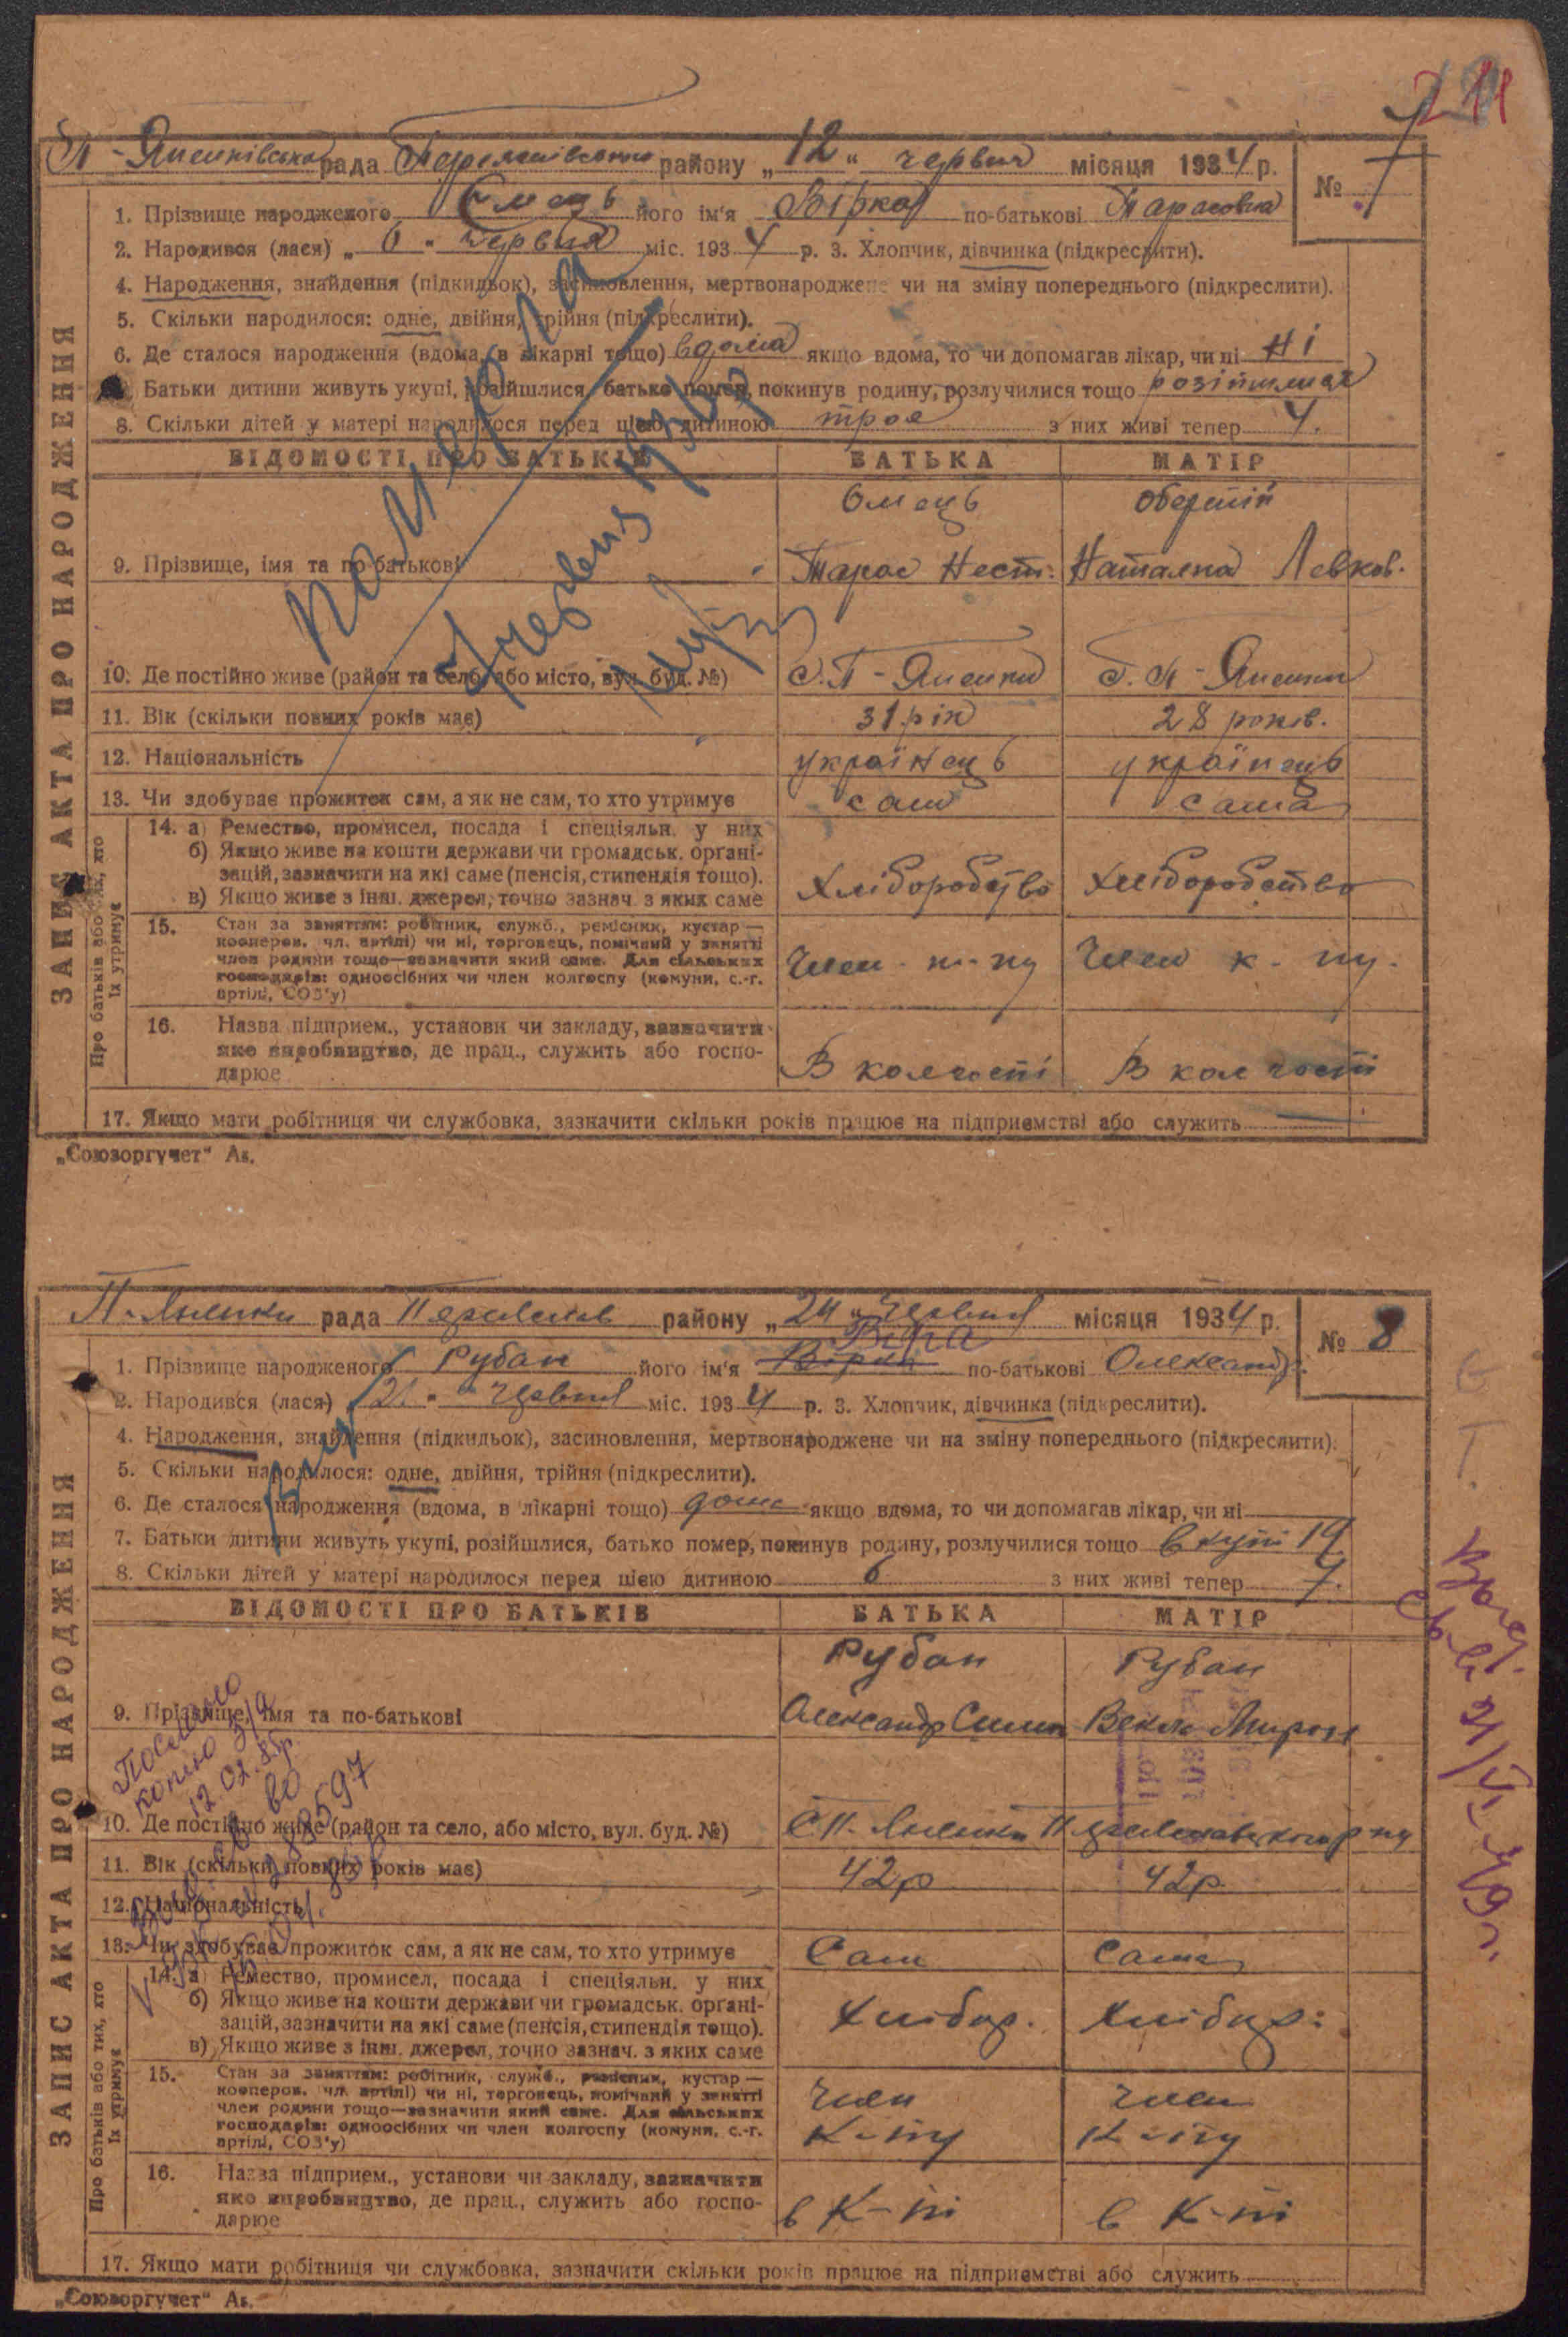 11
П-Яненківська рада Переяславського району „12“ червня місяця 1934 р.
№ 7
1. Прізвище народженого Омець його ім'я Вірка по-батькові Тарасовна
2. Народився (лася) „6“ червня міс. 1934 р. 3. Хлопчик, дівчинка (підкреслити).
4. Народження, знайдення (підкидьок), засиновлення, мертвонароджене чи на зміну попереднього (підкреслити).
5. Скільки народилося: одне, двійня, трійня (підкреслити).
6. Де сталося народження (вдома, в лікарні тощо) вдома якщо вдома, то чи допомагав лікар, чи ні Ні
Батьки дитини живуть укупі, розійшлися, батько помер, покинув родину, розлучилися тощо розійшлися
8. Скільки дітей у матері народилося перед цією дитиною трое з них живі тепер 4.
ВІДОМОСТІ ПРО БАТЬКІВ БАТЬКА МАТІР
Омець
9. Прізвище, імя та по-батькові Тарас Нест. Наталка Левков.
померла
4 червня 1936 р
10. Де постійно живе (район та село, або місто, вул. буд. №) с. П-
11. Вік (скільки повних років має) 31 рік 28 років.
12. Національність українець українець
13. Чи здобуває прожиток сам, а як не сам, то хто утримує сам сама
14. а) Ремество, промисел, посада і спеціяльн. у них
б) Якщо живе на кошти держави чи громадськ. органі-
зацій, зазначити на які саме (пенсія, стипендія тощо).
в) Якщо живе з інш. джерел, точно зазнач. з яких саме
Хліборобство Хліборобство
15. Стан за заняттям: робітник, служб., ремісник, кустар—
кооперов. чл. артілі) чи ні, торговець, помічний у занятті
член родини тощо—зазначити який саме. Для сільських
господарів: одноосібних чи член колгоспу (комуни, с.-г.
артілі, СОЗ'у)
Член к-пу Член к-пу.
16. Назва підприєм., установи чи закладу, зазначити
яке виробництво, де прац., служить або госпо-
дарює
В колгоспі В колгоспі
17. Якщо мати робітниця чи службовка, зазначити скільки років працює на підприємстві або служить
ЗАПИС АКТА ПРО НАРОДЖЕННЯ
Про батьків або тих, хто
їх утримує
„Союзоргучет“ Ав.
рада Переяслав району „24“ червня місяця 1934 р.
№ 8
Віра
1. Прізвище народженого Рубан його ім'я Вірка по-батькові Олександр.
2. Народився (лася) „21“ червня міс. 1934 р. 3. Хлопчик, дівчинка (підкреслити).
4. Народження, знайдення (підкидьок), засиновлення, мертвонароджене чи на зміну попереднього (підкреслити).
5. Скільки народилося: одне, двійня, трійня (підкреслити).
6. Де сталося народження (вдома, в лікарні тощо) дома якщо вдома, то чи допомагав лікар, чи ні
7. Батьки дитини живуть укупі, розійшлися, батько помер, покинув родину, розлучилися тощо вкупі
8. Скільки дітей у матері народилося перед цією дитиною 6 з них живі тепер 7.
ВІДОМОСТІ ПРО БАТЬКІВ БАТЬКА МАТІР
Рубан Рубан
9. Прізвище, імя та по-батькові Олександр Векла Мирон
Послано
копію з/а
12.02.85р.
10. Де постійно живе (район та село, або місто, вул. буд. №)
11. Вік (скільки повних років має) 42р 42р.
12. Національність
13. Чи здобуває прожиток сам, а як не сам, то хто утримує Сам сама
14. а) Ремество, промисел, посада і спеціяльн. у них
б) Якщо живе на кошти держави чи громадськ. органі-
зацій, зазначити на які саме (пенсія, стипендія тощо).
в) Якщо живе з інш. джерел, точно зазнач. з яких саме
Хлібор. Хлібор.
15. Стан за заняттям: робітник, служб., ремісник, кустар—
кооперов. чл. артілі) чи ні, торговець, помічний у занятті
член родини тощо—зазначити який саме. Для сільських
господарів: одноосібних чи член колгоспу (комуни, с.-г.
артілі, СОЗ'у)
член член
К-пу К-пу
16. Назва підприєм., установи чи закладу, зазначити
яке виробництво, де прац., служить або госпо-
дарює
в К-пі в К-пі
17. Якщо мати робітниця чи службовка, зазначити скільки років працює на підприємстві або служить
ЗАПИС АКТА ПРО НАРОДЖЕННЯ
Про батьків або тих, хто
їх утримує
„Союзоргучет“ Ав.